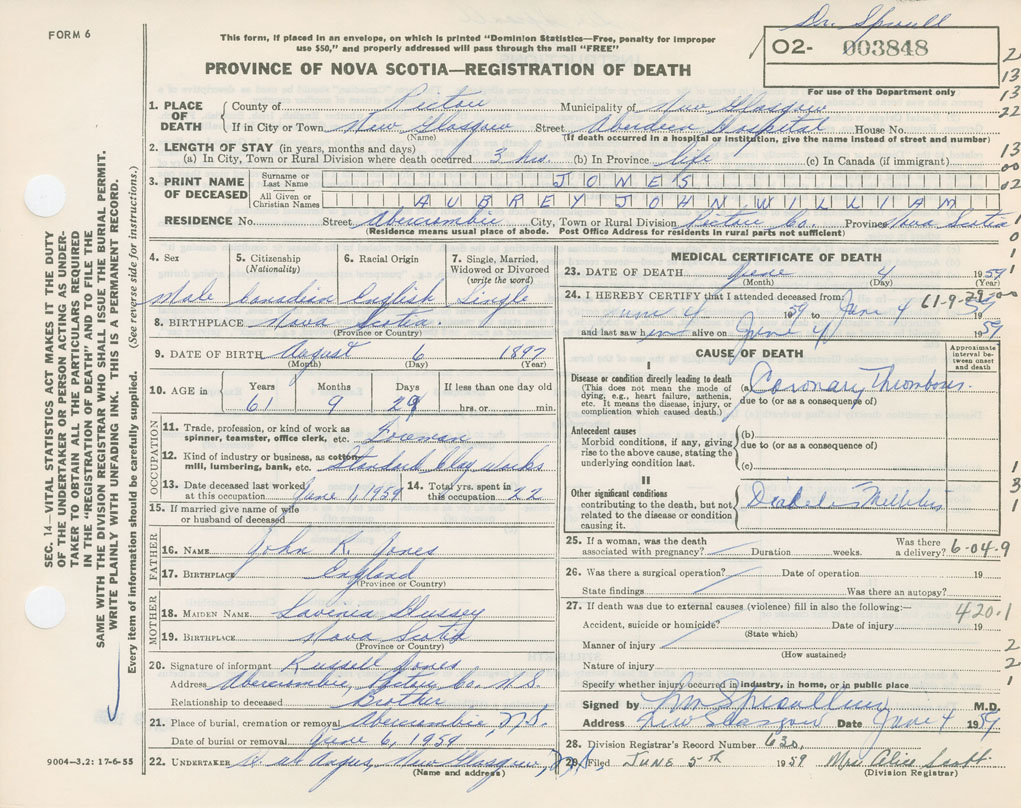 Dr. Sproull
FORM 6
This form, if placed in an envelope, on which is printed "Dominion Statistics—Free, penalty for improper
use $50," and properly addressed will pass through the mail "FREE"
O2- 003848
For use of the Department only
PROVINCE OF NOVA SCOTIA—REGISTRATION OF DEATH
1. PLACE OF DEATH County of Pictou Municipality of New Glasgow
If in City or Town New Glasgow Street Aberdeen Hospital House No.
(Name) (If death occurred in a hospital or institution, give the name instead of street and number)
2. LENGTH OF STAY (in years, months and days)
(a) In City, Town or Rural Division where death occurred 3 hrs. (b) In Province life (c) In Canada (if immigrant)
3. PRINT NAME OF DECEASED
Surname or Last Name JONES
All Given or Christian Names AUBREY JOHN WILLIAM
RESIDENCE No. Street Abercrombie City, Town or Rural Division Pictou Co. Province Nova Scotia
(Residence means usual place of abode. Post Office Address for residents in rural parts not sufficient)
4. Sex 5. Citizenship (Nationality) 6. Racial Origin 7. Single, Married, Widowed or Divorced (write the word)
Male Canadian English Single
8. BIRTHPLACE Nova Scotia
(Province or Country)
9. DATE OF BIRTH August 6 1897
(Month) (Day) (Year)
10. AGE in Years Months Days If less than one day old
61 9 29 hrs. or min.
OCCUPATION
11. Trade, profession, or kind of work as
spinner, teamster, office clerk, etc. Foreman
12. Kind of industry or business, as cotton
mill, lumbering, bank, etc. Standard Clay Works
13. Date deceased last worked at this occupation June 1, 1959 14. Total yrs. spent in this occupation 22
15. If married give name of wife
or husband of deceased
FATHER
16. NAME John R. Jones
17. BIRTHPLACE England
(Province or Country)
MOTHER
18. MAIDEN NAME Lavinia
19. BIRTHPLACE Nova Scotia
(Province or Country)
20. Signature of informant Russell Jones
Address Abercrombie, Pictou Co. N.S.
Relationship to deceased Brother
21. Place of burial, cremation or removal Abercrombie, N.S.
Date of burial or removal June 6, 1959
22. UNDERTAKER Angus, New Glasgow, N.S.
(Name and address)
9004—3.2: 17-6-55
SEC. 14—VITAL STATISTICS ACT MAKES IT THE DUTY
OF THE UNDERTAKER OR PERSON ACTING AS UNDER-
TAKER TO OBTAIN ALL THE PARTICULARS REQUIRED
IN THE "REGISTRATION OF DEATH" AND TO FILE THE
SAME WITH THE DIVISION REGISTRAR WHO SHALL ISSUE THE BURIAL PERMIT.
WRITE PLAINLY WITH UNFADING INK. THIS IS A PERMANENT RECORD.
Every item of information should be carefully supplied. (See reverse side for instructions.)
MEDICAL CERTIFICATE OF DEATH
23. DATE OF DEATH June 4 1959
(Month) (Day) (Year)
24. I HEREBY CERTIFY that I attended deceased from 61-9-29
June 4 1959 to June 4 1959
and last saw him alive on June 4 1959
CAUSE OF DEATH
Approximate interval between onset and death
I
Disease or condition directly leading to death
(This does not mean the mode of
dying, e.g., heart failure, asthenia,
etc. It means the disease, injury, or
complication which caused death.)
(a) Coronary Thrombosis.
due to (or as a consequence of)
Antecedent causes
Morbid conditions, if any, giving
rise to the above cause, stating the
underlying condition last.
(b)
due to (or as a consequence of)
(c)
II
Other significant conditions
contributing to the death, but not
related to the disease or condition
causing it.
Diabetes Mellitus
25. If a woman, was the death
associated with pregnancy? Duration weeks. Was there a delivery? 6-04-9
26. Was there a surgical operation? Date of operation 19
State findings Was there an autopsy?
27. If death was due to external causes (violence) fill in also the following:— 420.1
Accident, suicide or homicide? Date of injury 19
(State which)
Manner of injury
(How sustained)
Nature of injury
Specify whether injury occurred in industry, in home, or in public place
Signed by M.D.
Address New Glasgow Date June 4 1959
28. Division Registrar's Record Number 630,
29. Filed JUNE 5th 1959 Mrs. Alice Scott
(Division Registrar)
2
13
13
22
13
00
02
1
0
1
1
3
1
2
2
1